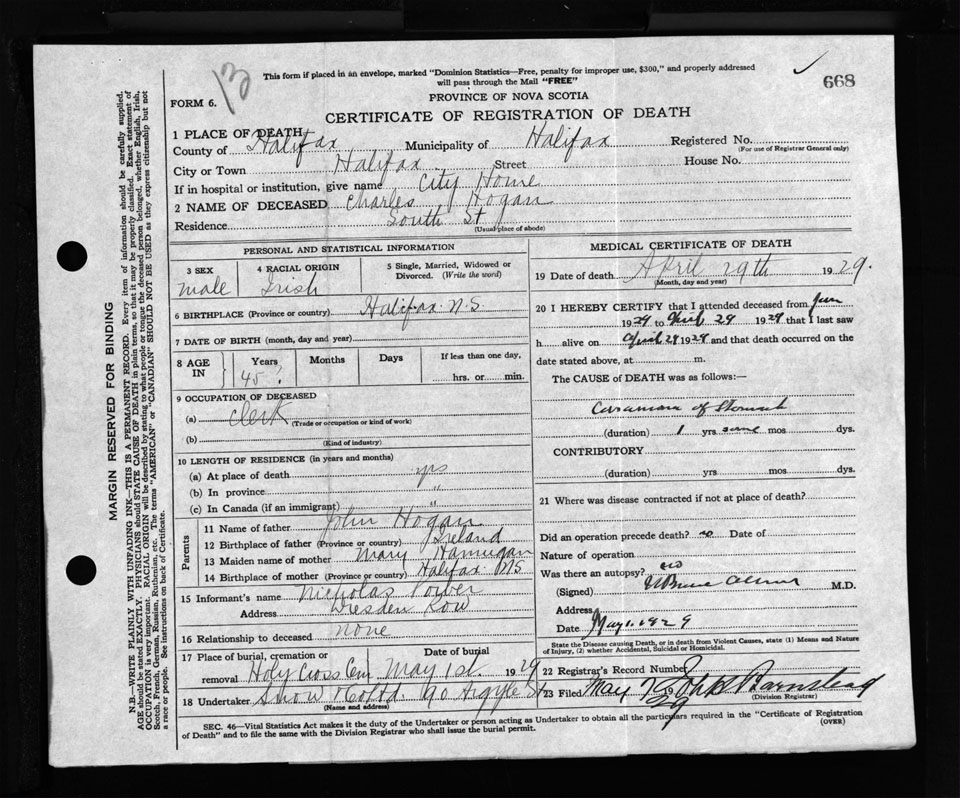 13
This form if placed in an envelope, marked "Dominion Statistics—Free, penalty for improper use, $300," and properly addressed
will pass through the Mail "FREE"
668
FORM 6.
PROVINCE OF NOVA SCOTIA
CERTIFICATE OF REGISTRATION OF DEATH
1 PLACE OF DEATH
County of Halifax Municipality of Halifax Registered No.
(For use of Registrar General only)
City or Town Halifax Street House No.
If in hospital or institution, give name City Home
2 NAME OF DECEASED Charles Hogan
Residence South St
(Usual place of abode)
PERSONAL AND STATISTICAL INFORMATION
3 SEX 4 RACIAL ORIGIN 5 Single, Married, Widowed or
Divorced. (Write the word)
male Irish
6 BIRTHPLACE (Province or country) Halifax N.S.
7 DATE OF BIRTH (month, day and year)
8 AGE IN Years Months Days If less than one day,
45? hrs. or min.
9 OCCUPATION OF DECEASED
(a) Clerk
(Trade or occupation or kind of work)
(b)
(Kind of industry)
10 LENGTH OF RESIDENCE (in years and months)
(a) At place of death yrs
(b) In province "
(c) In Canada (if an immigrant) "
Parents
11 Name of father John Hogan
12 Birthplace of father (Province or country) Ireland
13 Maiden name of mother Mary Hannigan
14 Birthplace of mother (Province or country) Halifax NS
15 Informant's name Nicholas Power
Address Dresden Row
16 Relationship to deceased none
17 Place of burial, cremation or removal Date of burial
Holy Cross Cem May 1st. 1929
18 Undertaker Snow & Co Ltd 90 Argyle St
(Name and address)
MEDICAL CERTIFICATE OF DEATH
19 Date of death April 29th 1929.
(Month, day and year)
20 I HEREBY CERTIFY that I attended deceased from Jan
1929 to April 29 1929 that I last saw
h alive on April 29 1929 and that death occurred on the
date stated above, at m.
The CAUSE of DEATH was as follows:—
Carcinoma of Stomach
(duration) 1 yrs mos dys.
CONTRIBUTORY
(duration) yrs mos dys.
21 Where was disease contracted if not at place of death?
Did an operation precede death? no Date of
Nature of operation
Was there an autopsy? no
(Signed) M.D.
Address
Date May 1, 1929
State the Disease causing Death, or in death from Violent Causes, state (1) Means and Nature
of Injury, (2) whether Accidental, Suicidal or Homicidal.
22 Registrar's Record Number
23 Filed May 7 1929 John Barnstead
(Division Registrar)
SEC. 46—Vital Statistics Act makes it the duty of the Undertaker or person acting as Undertaker to obtain all the particulars required in the "Certificate of Registration
of Death" and to file the same with the Division Registrar who shall issue the burial permit.
(OVER)
MARGIN RESERVED FOR BINDING
N.B.—WRITE PLAINLY WITH UNFADING INK—THIS IS A PERMANENT RECORD. Every item of information should be carefully supplied.
AGE should be stated EXACTLY. PHYSICIANS should STATE CAUSE OF DEATH in plain terms, so that it may be properly classified. Exact statement of
OCCUPATION is very important. RACIAL ORIGIN will be described by stating to what people or tongue the deceased person belonged, whether English, Irish,
Scotch, French, German, Russian, Ruthenian, etc. The terms "AMERICAN" or "CANADIAN" SHOULD NOT BE USED as they express citizenship but not
a race or people. See instructions on back of Certificate.